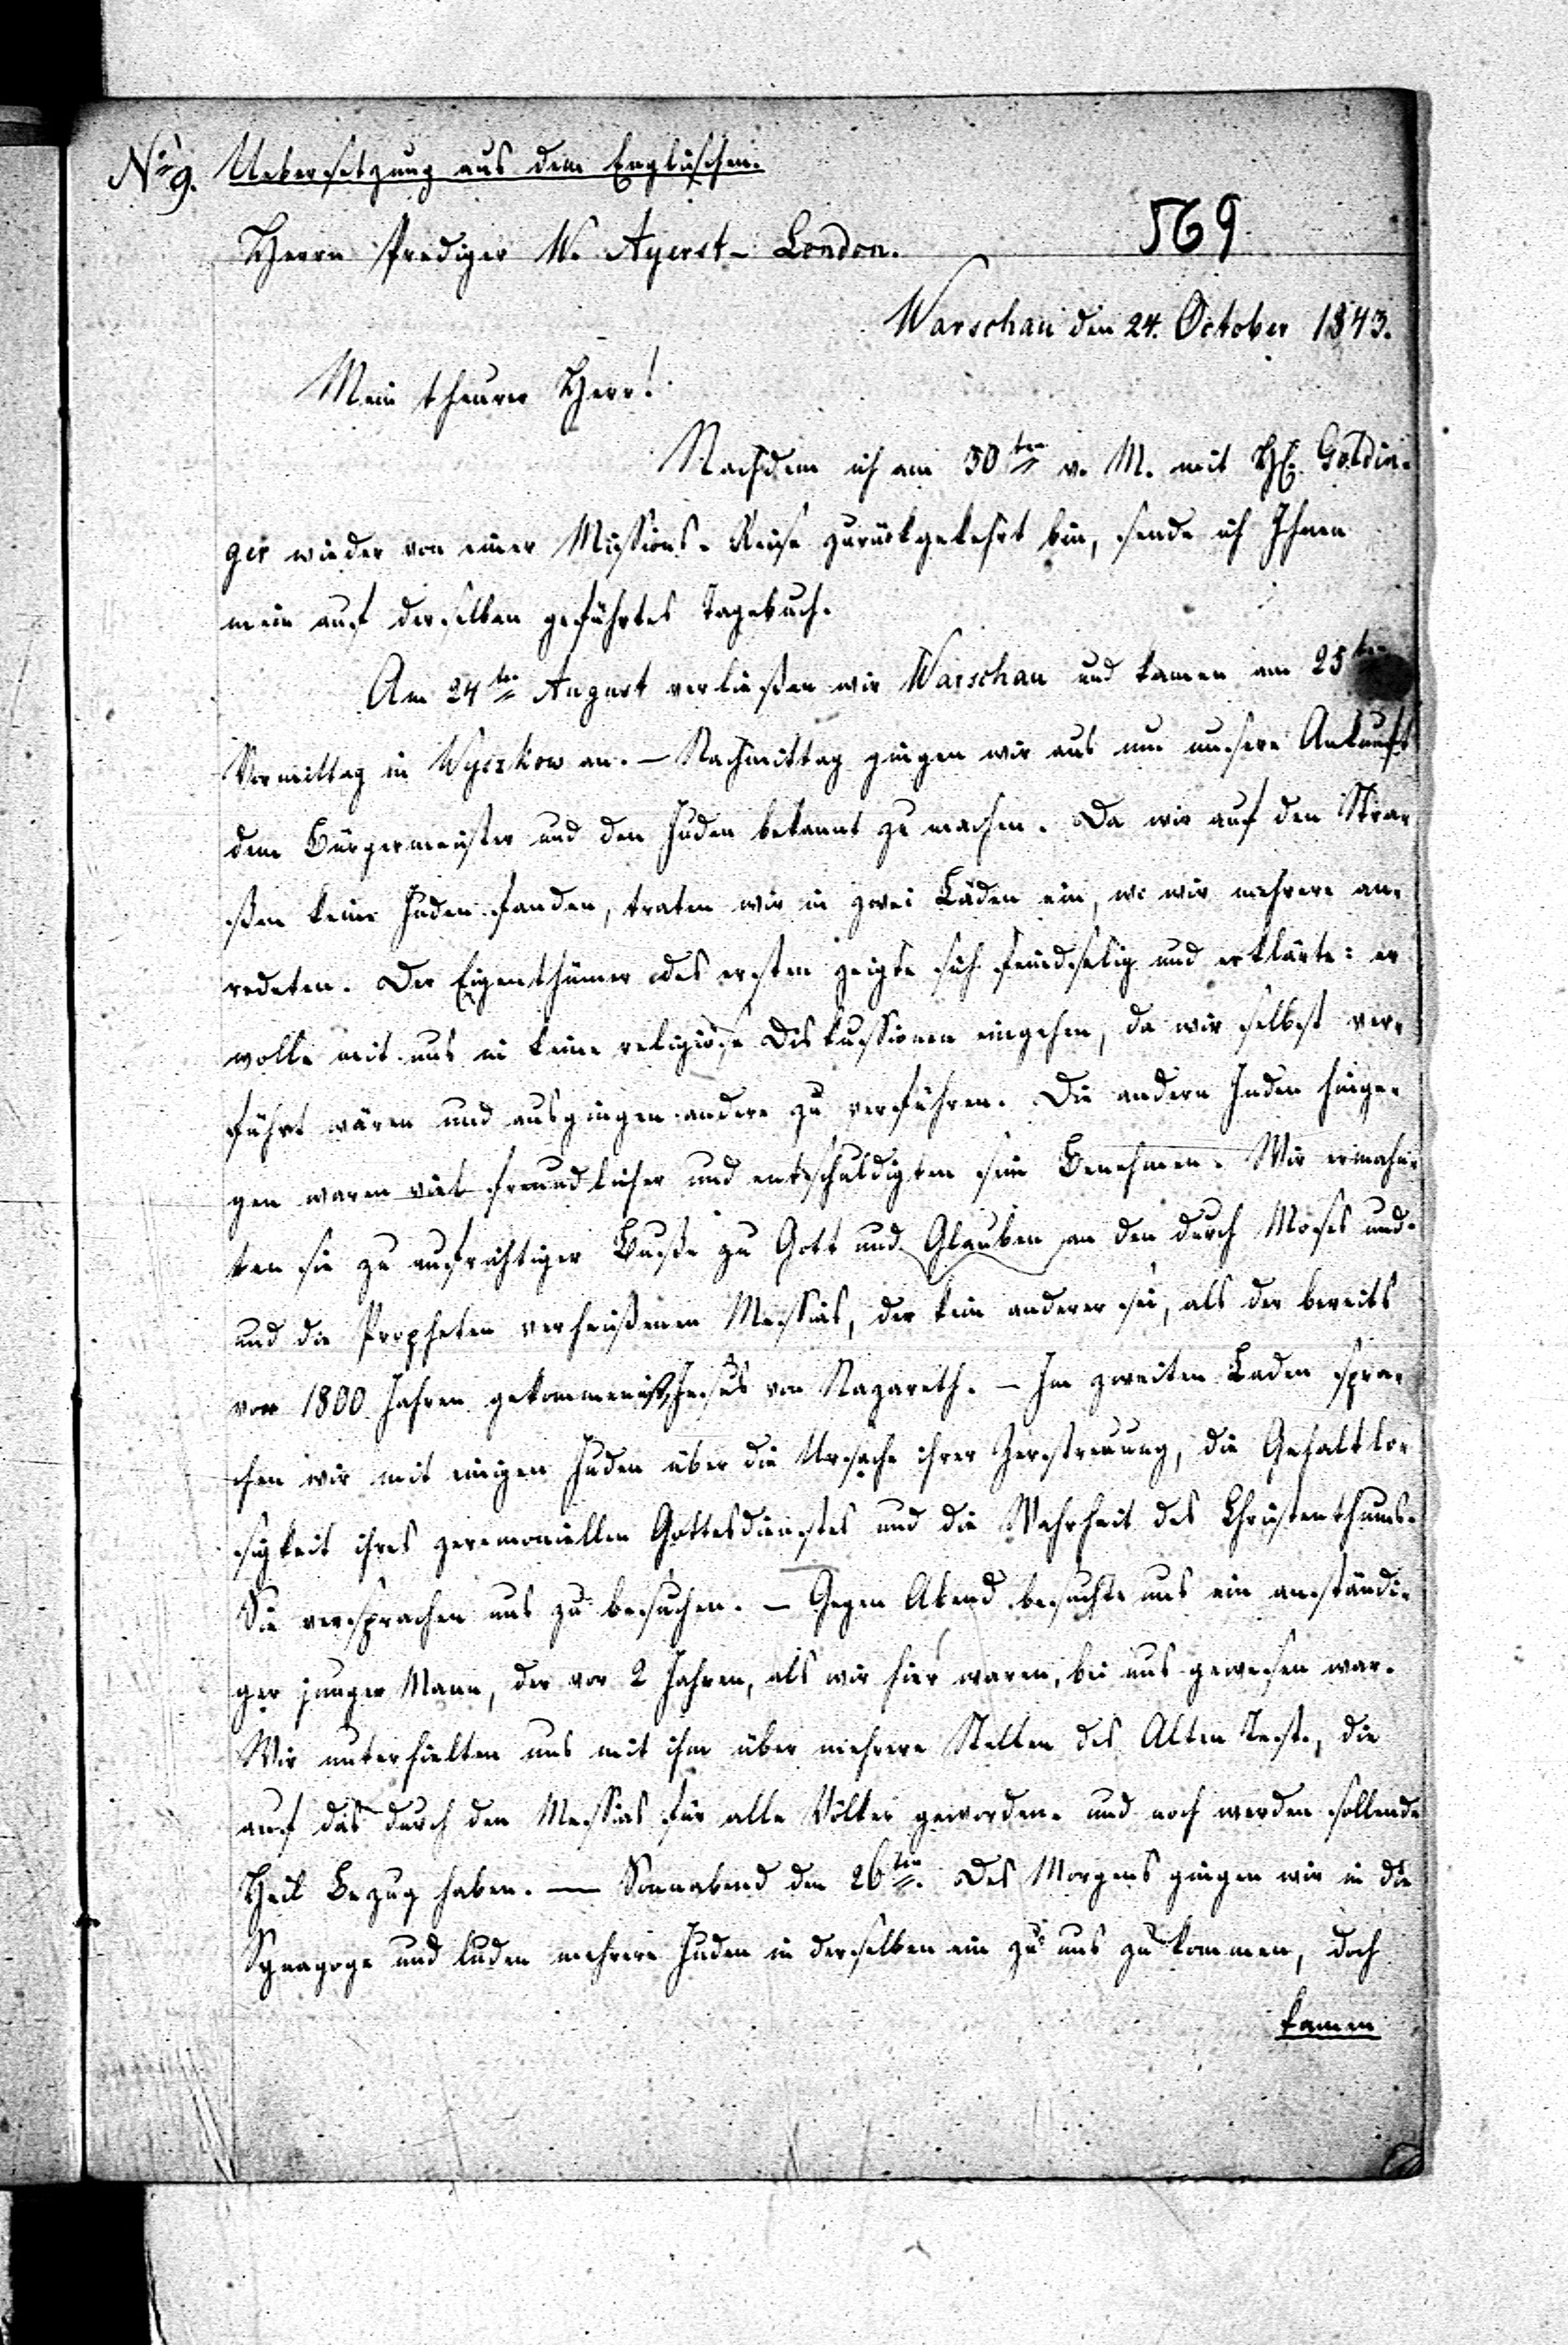 No 9. Uebersetzung aus dem Englischen.
569
Herrn Prediger W. Ayerst - London.
Warschau den 24. October 1843.
Mein theurer Herr!
Nachdem ich am 30ten v. M. mit H. Goldin-
ger wieder von einer Missions-Reise zurückgekehrt bin, sende ich Ihnen
mein auf derselben geführtes Tagebuch.
Am 24ten August verließen wir Warschau und kamen am 25ten
Vormittag in Wyszkow an. — Nachmittag gingen wir aus um unsere Ankunft
dem Bürgermeister und den Juden bekannt zu machen. Da wir auf den Stra-
ßen keine Juden fanden, traten wir in zwei Läden ein, wo wir mehrere an-
redeten. Der Eigenthümer des ersten zeigte sich feindselig und erklärte: er
wolle mit uns in keine religiöse Diskussionen eingehen, da wir selbst ver-
führt wären und ausgingen andere zu verführen. Die andern Juden hinge-
gen waren viel freundlicher und entschuldigten sein Benehmen. Wir ermahn-
ten sie zu aufrichtiger Buße zu Gott und Glauben an den durch Moses und
und die Propheten verheißenen Messias, der kein anderer sei, als der bereits
vor 1800 Jahren gekommen ist, Jesus von Nazareth. — Im zweiten Laden spra-
chen wir mit einigen Juden über die Ursache ihrer Zerstreuung, die Gehaltlo-
sigkeit ihres zeremoniellen Gottesdienstes und die Wahrheit des Christenthums.
Sie versprachen uns zu besuchen. — Gegen Abend besuchte uns ein anständi-
ger junger Mann, der vor 2 Jahren, als wir hier waren, bei uns gewesen war.
Wir unterhielten uns mit ihm über mehrere Stellen des Alten Test., die
auf das durch den Messias für alle Völker gewordene und noch werden sollende
Heil Bezug haben. — Sonnabend den 26ten. Des Morgens gingen wir in die
Synagoge und luden mehrere Juden in derselben ein zu uns zu kommen, doch
kamen